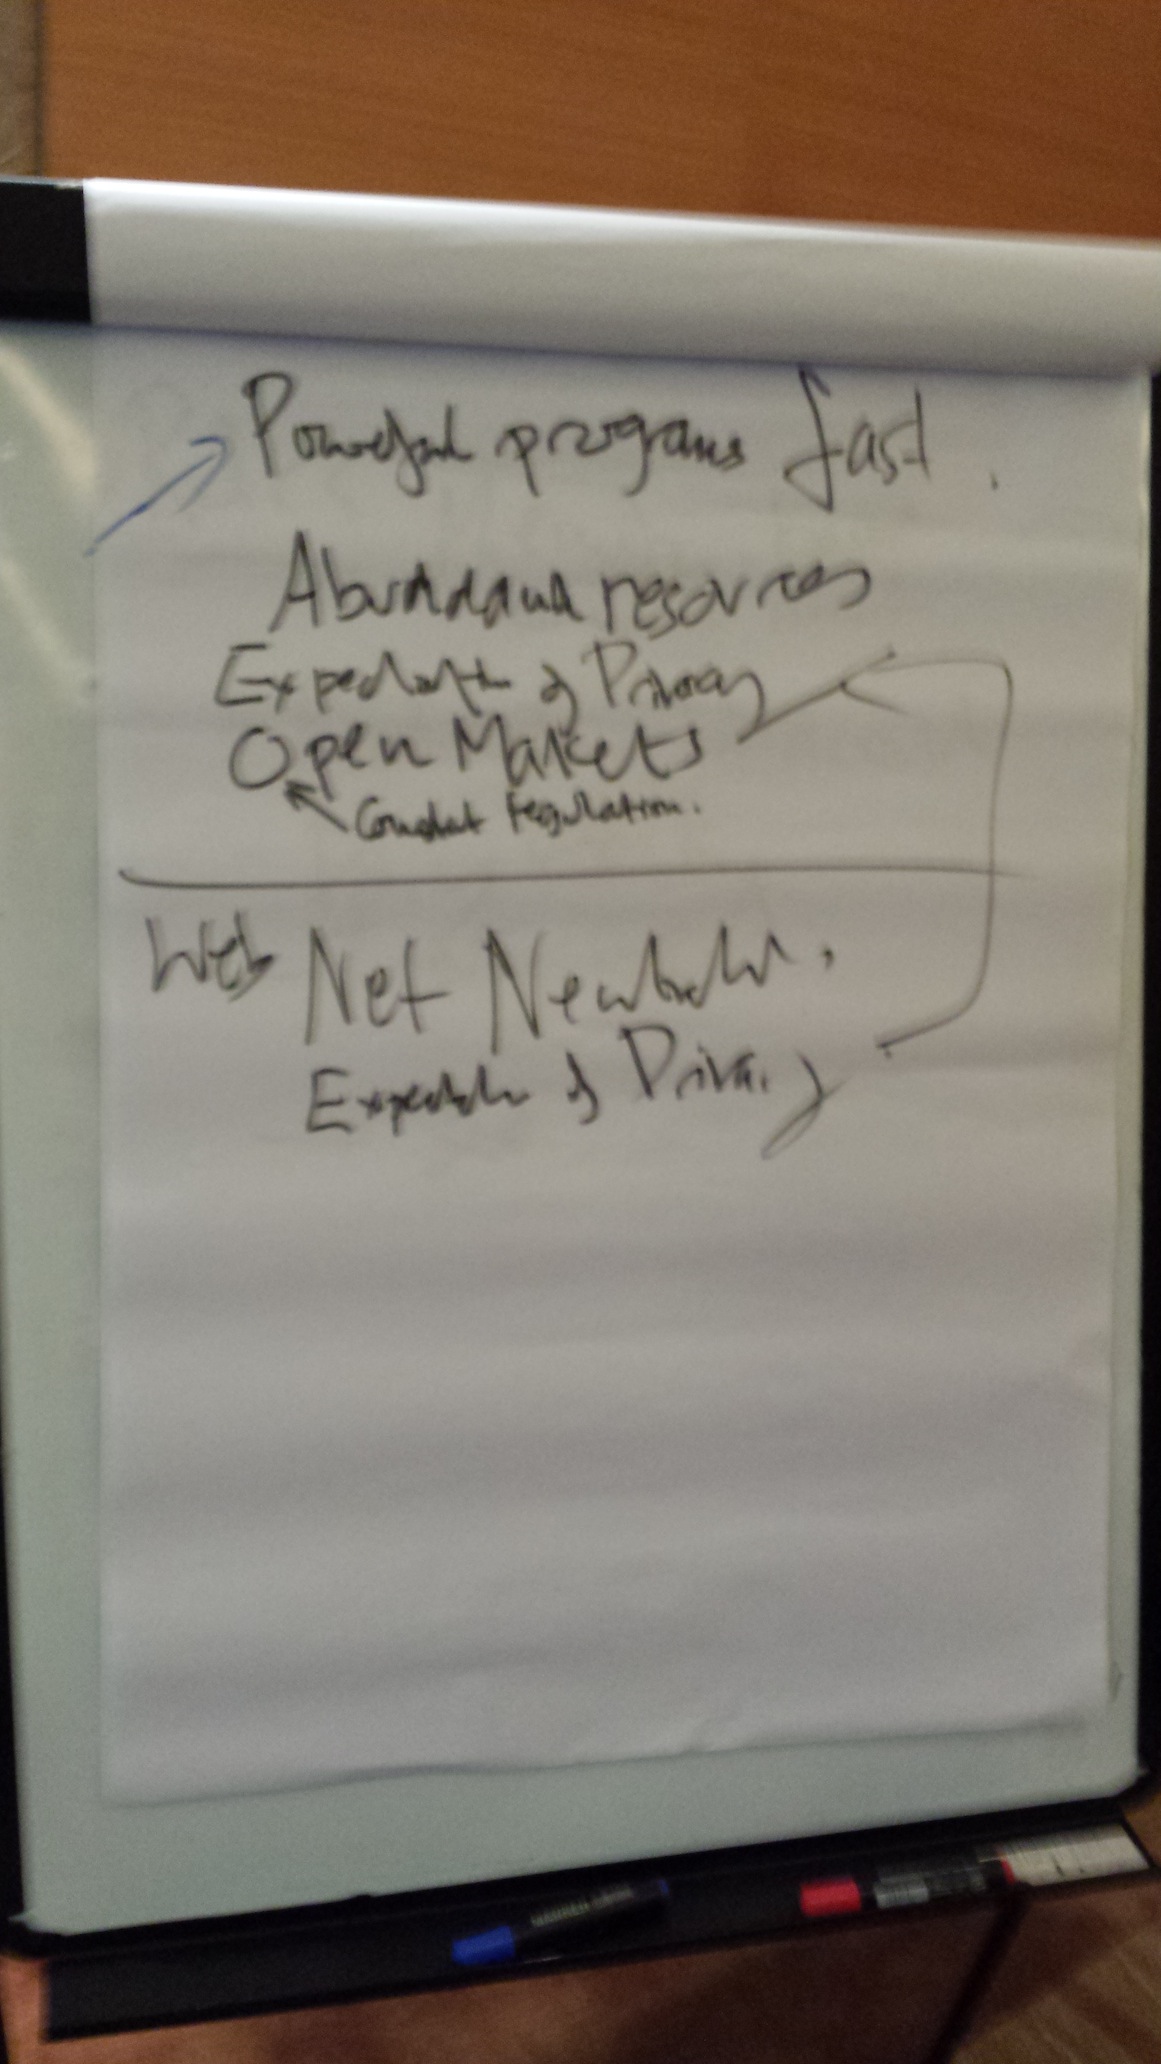 Powerful programs fast.
Abundant resources
Expectation of Privacy
Open Markets
regulation.
Web Net Neutrality.
Expectation of Privacy